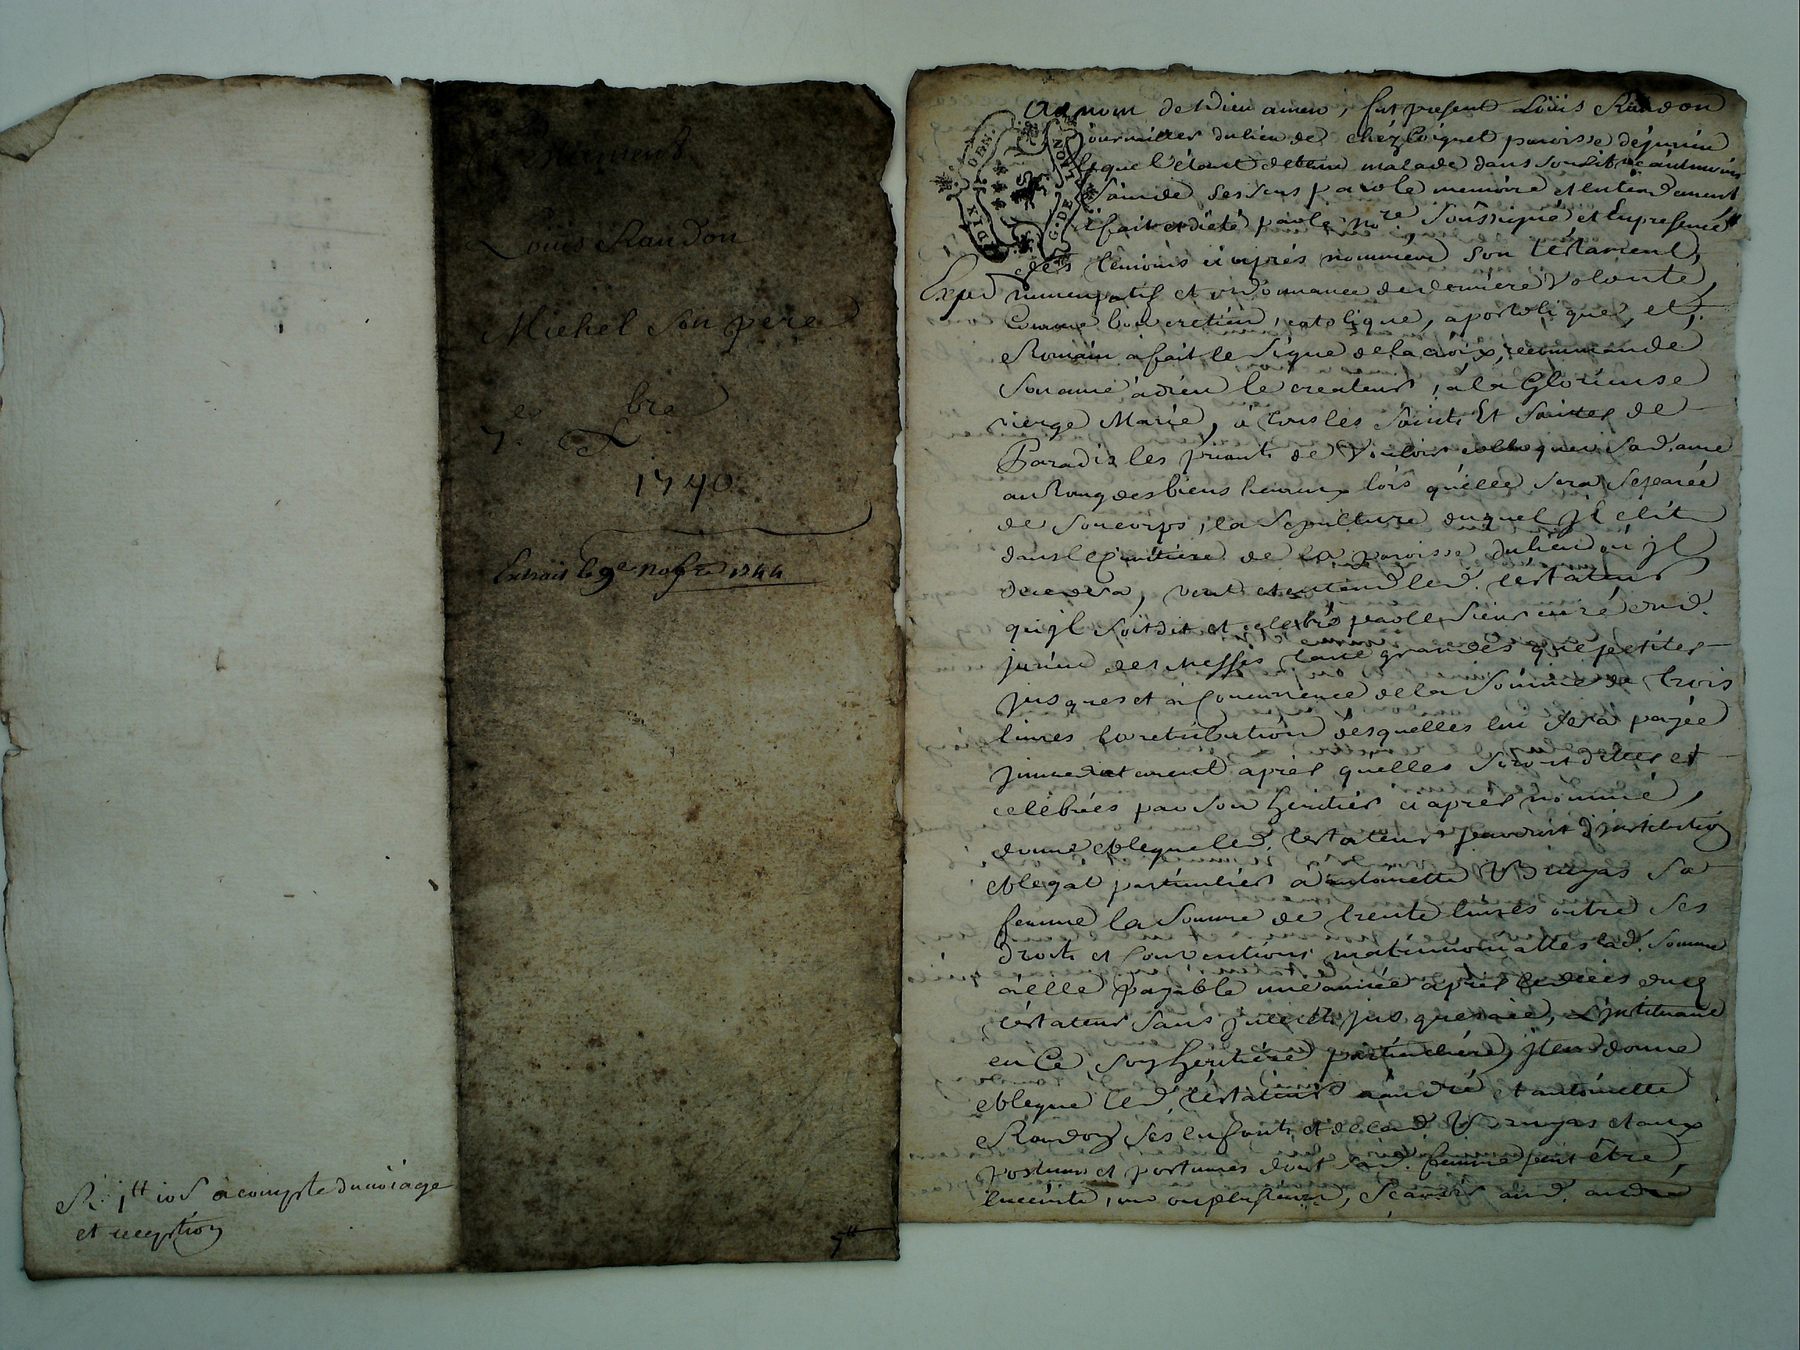 Louis Randon
Michel son pere
7e bre
1740
Extrait le 9e nobre 1744
R. 1tt 10 s acompte du voiage
et reception
5tt
Au nom de Dieu amen, fut present Louis Randon
journallier du lieu de chez Coignet paroisse de jurieu
lequel étant detenu malade dans son lit neantmoins
sain de ses sens parole memoire et entendement
a fait et dicté par le nre soussigné et en presence
des temoins ci après nommés son testament
Exped
nuncupatif et ordonnance de derniere volonté,
comme bon cretien, catolique, apostolique, et
Romain a fait le signe de la croix, recommande
son ame a dieu le createur, a la Glorieuse
vierge Marie, a tous les saints Et saintes de
Paradis les priants de vouloir colloquer sad. ame
au Rang des biens heureux lors quelle sera separée
de son corps, la sepulture duquel jl elit
dans le cimitiere de la paroisse du lieu où jl
decedera, veut et entend led. testateur
qu jl soit dit et celebré par le sieur curé dud.
jurieu des Messes tant grandes que petites
jusques et a concurrence de la somme de trois
livres la retribution desquelles lui sera payée
jmmediatement après quelles seront dittes et
celébrées par son heritier ci après nommé,
donne et legue led. testateur par droit d'jnstitution
et legat particulier a antoinette Bruyas sa
femme la somme de trente livres outre ses
droits et conventions matrimonialles lad. somme
a elle payable une année après le decés dud.
testateur sans jnterêts jus ques a ce, L'jnstituant
en ce son heritiere particuliere, jtem donne
et legue led. testateur a andré et antoinette
Randon ses enfants et de lad. Bruyas et aux
postume et postumes dont sad. femme peut être
enceinte, un ou plusieurs, scavoir aud. andré